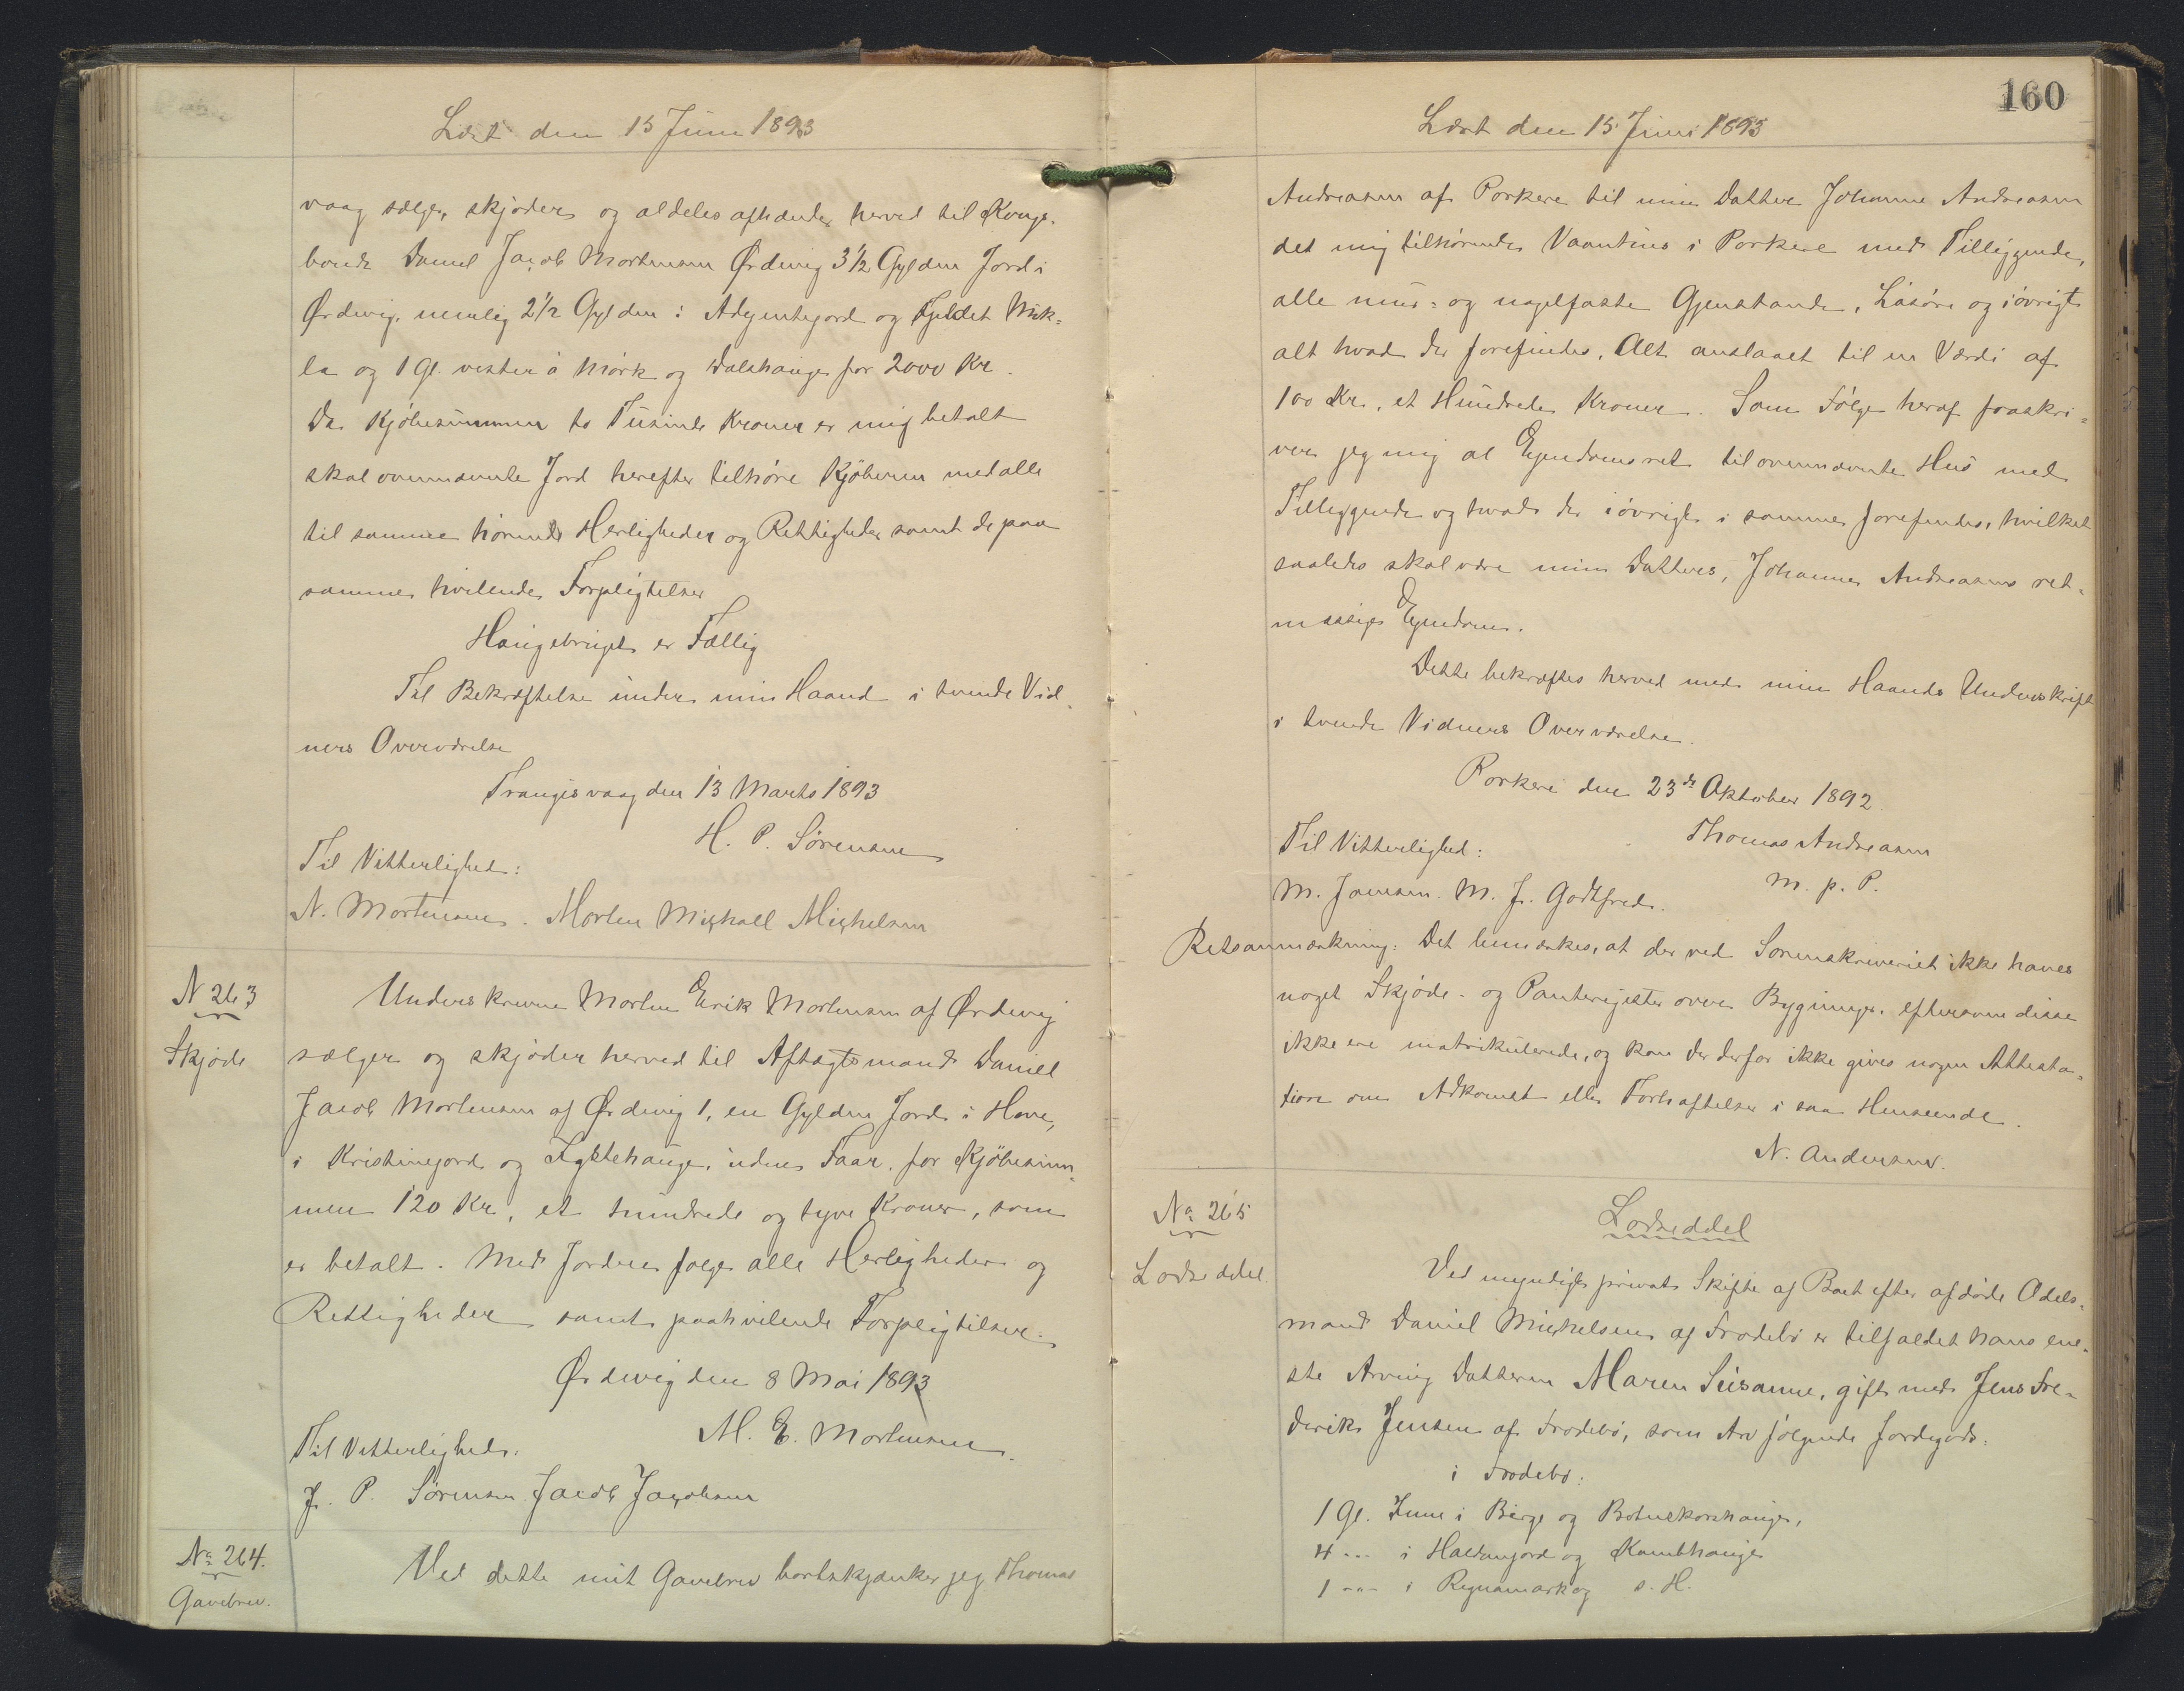 Læst den 15 Juni 1893
vaag sælger, skjøder og aldeles afhænder herved til Konge-
bonde Daniel Jacob Mortensen Ørdevig 3 1/2 Gylden Jord i
Ørdevig, nemlig 2 1/2 Gylden i Adgentegord og Fjeldet Mik-
la og 1 Gl. vester á Mørk og Dalshauge for 2000 Kr.
Da Kjøbesummen to Tusinde Kroner er mig betalt
skal ovennævnte Jord herefter tilhøre Kjøberen med alle
til samme hørende Herligheder og Rettigheder samt de paa
samme hvilende Forpligtelser
Haugebruget er Fællig
Til Bekræftelse under min Haand i tvende Vid-
ners Overværelse
Trangisvaag den 13 Marts 1893
H. P. Sørensen
Til Vitterlighed:
N. Mortensen. Morten Michall Michelsen
N 263
Skjøde
Underskrevne Morten Erik Mortensen af Ørdevig
sælger og skjøder herved til Aftægtsmand Daniel
Jacob Mortensen af Ørdevig 1, en Gylden Jord i Hove,
i Kristinegord og Lyktehauge, uden Faar, for Kjøbesum-
men 120 Kr, et hundrede og tyve Kroner, som
er betalt. Med Jorden følger alle Herligheder og
Rettigheder samt paahvilende Forpligtelser.
Ørdevig den 8 Mai 1893
M. E. Mortensen.
Til Vitterlighed.
J. P. Sørensen. Jacob Jacobsen
No 264.
Gavebrev.
Ved dette mit Gavebrev bortskjænker jeg Thomas
160
Læst den 15 Juni 1893
Andreasen af Porkere til min Datter Johanne Andreasen
det mig tilhørende Vaanhus i Porkere med Tilliggende,
alle mur- og nagelfaste Gjenstande, Løsøre og iøvrigt
alt hvad der forefindes, Alt anslaaet til en Værdi af
100 Kr., et Hundrede Kroner. Som Følge heraf fraskri-
ver jeg mig al Ejendomsret til ovennævnte Hus med
Tilliggende og hvad der iøvrigt i samme forefindes, hvilket
saaledes skal være min Datters, Johanne Andreasens ret-
mæssige Ejendom.
Dette bekræftes herved med min Haands Underskrift
i tvende Vidners Overværelse.
Porkeri den 23de Oktober 1892.
Thomas Andreasen
m. p. P.
Til Vitterlighed:
M. Joensen. M. J. Godtfred.
Retsanmærkning: Det bemærkes, at der ved Sorenskriveriet ikke haves
noget Skjøde- og Panteregister over Bygninger, eftersom disse
ikke ere matrikulerede, og kan der derfor ikke gives nogen Attesta-
tion om Adkomst eller Forhæftelser i saa Henseende.
N. Andersen.
No 265
Lodseddel.
Lodseddel
Ved myndigt privat Skifte af Boet efter afdøde Odels-
mand Daniel Michelsen af Frodebø er tilfaldet hans ene-
ste Arving Datteren Maren Susanne, gift med Jens Fre-
derik Jensen af Frodebø, som Arv følgende Jordegods:
i Frodebø:
1 Gl. Inne i Berge og Botnskorshauge,
4 -"- i Haldangord og Kambhauge
1 -"- i Regnamark og s. H.